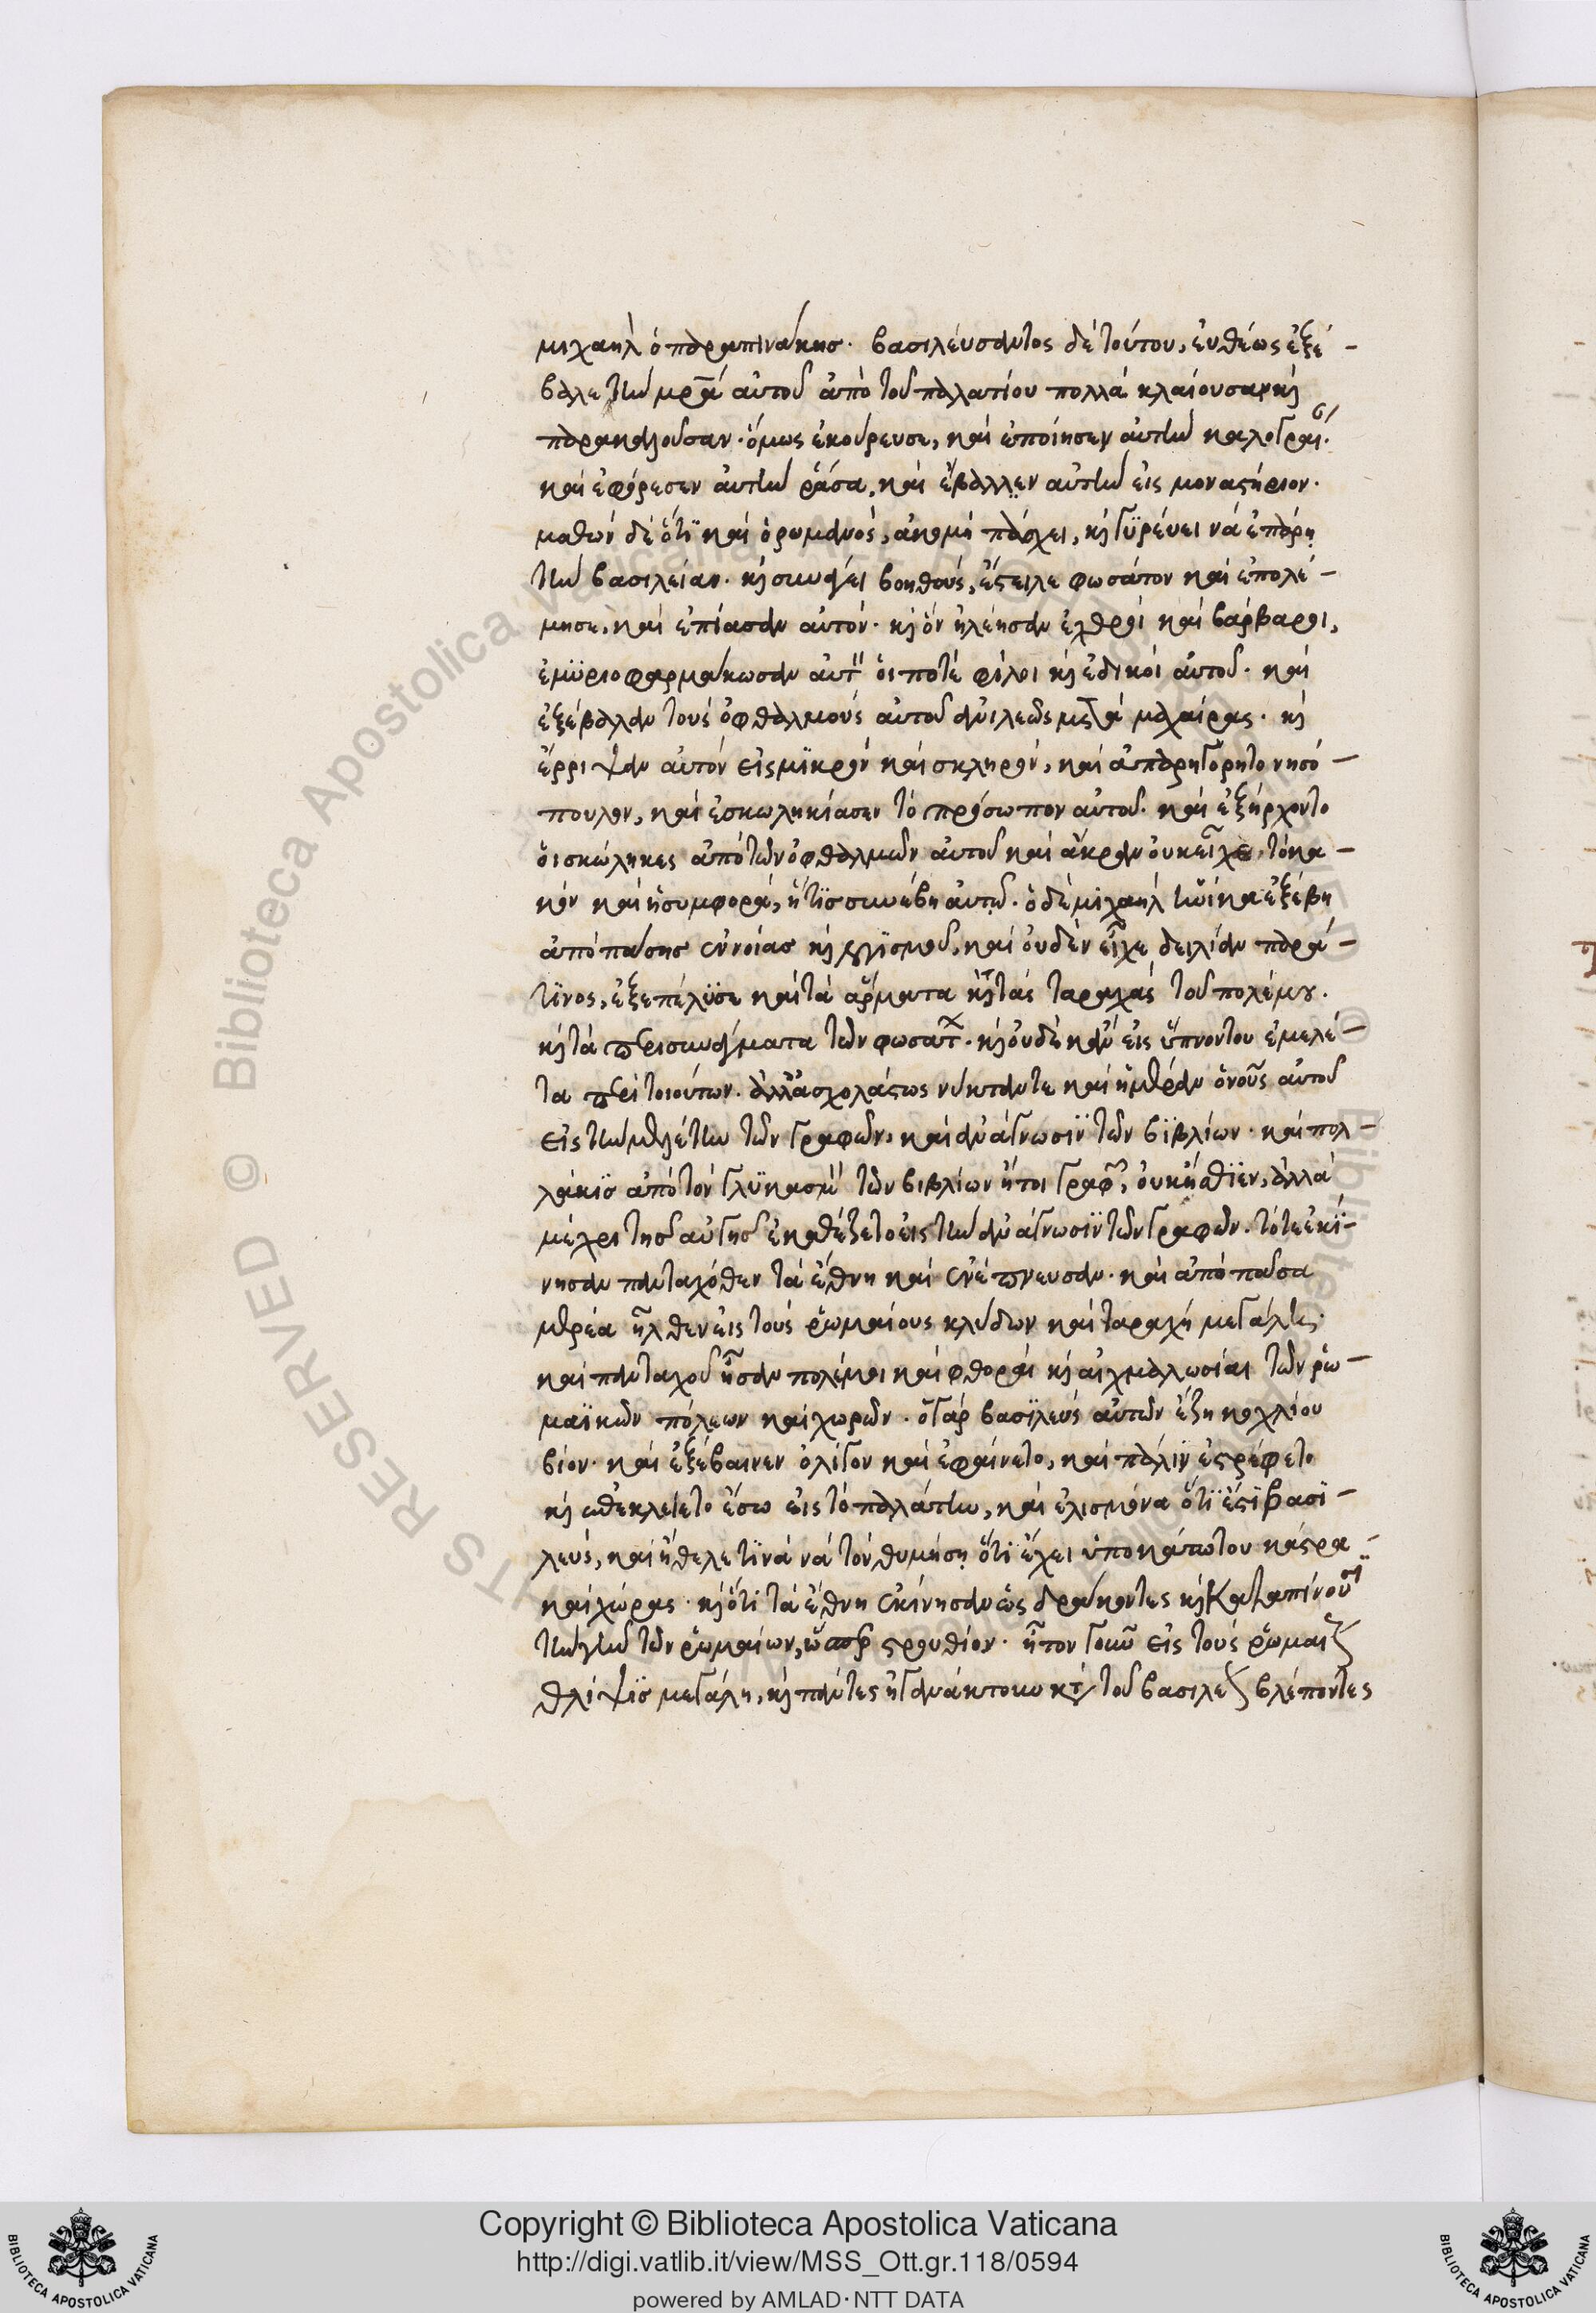 μιχαηλ ὁ παραπινάκησ. βασιλεύσαντος δὲ τούτου, ἐυθέως ἐξέ-
βαλε τὴν μρᾶ αὐτοῦ ἀπὸ τοῦ παλατίου πολλὰ κλαίουσαν κὶ
παρακαλοῦσαν. ὅμως ἐκούρευσε, καὶ ἐποίησεν αὐτὴν καλογραί.
καὶ ἐφόρεσεν αὐτὴν ῥάσα, καὶ ἔβαλλεν αὐτὴν εἰς μοναστήριον.
μαθὼν δὲ ὅτϊ καὶ ὁ ρωμανὸς, ἀκομὴ πάσχει, κὶ γϋρέυει νὰ ἐπάρῃ
τὴν βασιλείαν. κὶ συνάγει βοηθοὺς, ἔστειλε φωσάτον καὶ ἐπολέ-
μησε, καὶ ἐπίασαν αὐτόν. κὶ ὃν ἠλέησαν ἐχθροὶ καὶ βάρβαροι,
ἐμϋριοφαρμάκωσαν αὐτ ὁι ποτὲ φίλοι κὶ ἐδικοὶ αὐτοῦ. καὶ
ἐξέβαλαν τοὺς ὀφθαλμοὺς αὐτοῦ ἀνιλεῶς μετὰ μαχαίρας. κὶ
ἔρριψαν αὐτὸν εἰς μϊκρὸν καὶ σκληρὸν, καὶ ἀπαρηγόρητο νησό-
πουλον, καὶ ἐσκωληκίασεν τὸ πρόσωπον αὐτοῦ. καὶ ἐξήρχοντο
ὁι σκώληκες ἀπὸ τῶν ὀφθαλμῶν αὐτοῦ καὶ ἄκραν ὀυκ εἶχε τὸ κα-
κὸν καὶ ἡ συμφορὰ, ἥτϊσ συνέβη αὐτῷ. ὁ δὲ μιχαηλ ἐξέβη
ἀπὸ πάσησ ἐννοίασ κὶ λογϊσμοῦ, καὶ ὀυδὲν εἶχε δειλίαν παρά-
τϊνος, ἐξεπέλϋσε καὶ τὰ ἄρματα κὶ τὰς ταραχὰς τοῦ πολέμου.
κὶ τὰ περισυνάγματα τῶν φωσάτ. κὶ ὀυδὲ κἂν εἰς ὕπνον του ἐμελέ-
τα περὶ τοιούτων. ἀλλ' ἀσχολάστως νύκταν τε καὶ ἡμέραν ὁ νοῦς αὐτοῦ
εἰς τὴν μελέτην τῶν γραφῶν, καὶ ἀνάγνωσϊν τῶν βϊβλίων. καὶ πολ-
λάκϊσ ἀπὸ τὸν γλϋκασμ τῶν βιβλίων ἤτοι γραφ, ὀυκ ἤσθϊεν, ἀλλὰ
μέχρι τῆσ αὐγῆσ ἐκαθέζετο εἰς τὴν ἀνάγνωσϊν τῶν γραφῶν. τότε ἐκϊ-
νησαν πανταχόθεν τὰ ἔθνη καὶ ἐνέπνευσαν. καὶ ἀπὸ πᾶσα
μερέα ἦλθεν εἰς τοὺς ῥωμαίους κλύδων καὶ ταραχὴ μεγάλες.
καὶ πανταχοῦ ἦσαν πολέμοι καὶ φθοραὶ κὶ αἰχμαλωσίαι τῶν ῥω-
μαϊκῶν πόλεων καὶ χωρῶν. ὁ γὰρ βασϊλεὺς αὐτῶν ἔζη κοχλίου
βίον. καὶ ἐξέβαινεν ὀλίγον καὶ ἐφαίνετο, καὶ πάλϊν ἐστρέφετο
κὶ ἐπεκλείετο ἔσω εἰς τὸ παλάτιν, καὶ ἐλισμόνα ὅτϊ ἐστϊ βασϊ-
λεὺς, καὶ ἤθελε τϊνὰ νὰ τὸν θυμήσῃ ὅτϊ ἔχει ὑποκάτω του κάστρα
καὶ χώρας. κὶ ὅτϊ τὰ ἔθνη ἐκίνησαν ὡς δράκοντες κὶ καταπίνουσϊ
τὴν γῆν τῶν ῥωμαίων, ὥσπερ στρουθίον. ἦτον γοῦν εἰς τοὺς ῥωμαί
θλίψϊσ μεγάλη, κὶ πάντες ἠγανάκτουν κτ τοῦ βασιλε βλέποντες
Copyright © Biblioteca Apostolica Vaticana
http://digi.vatlib.it/view/MSS_Ott.gr.118/0594
powered by AMLAD·NTT DATA